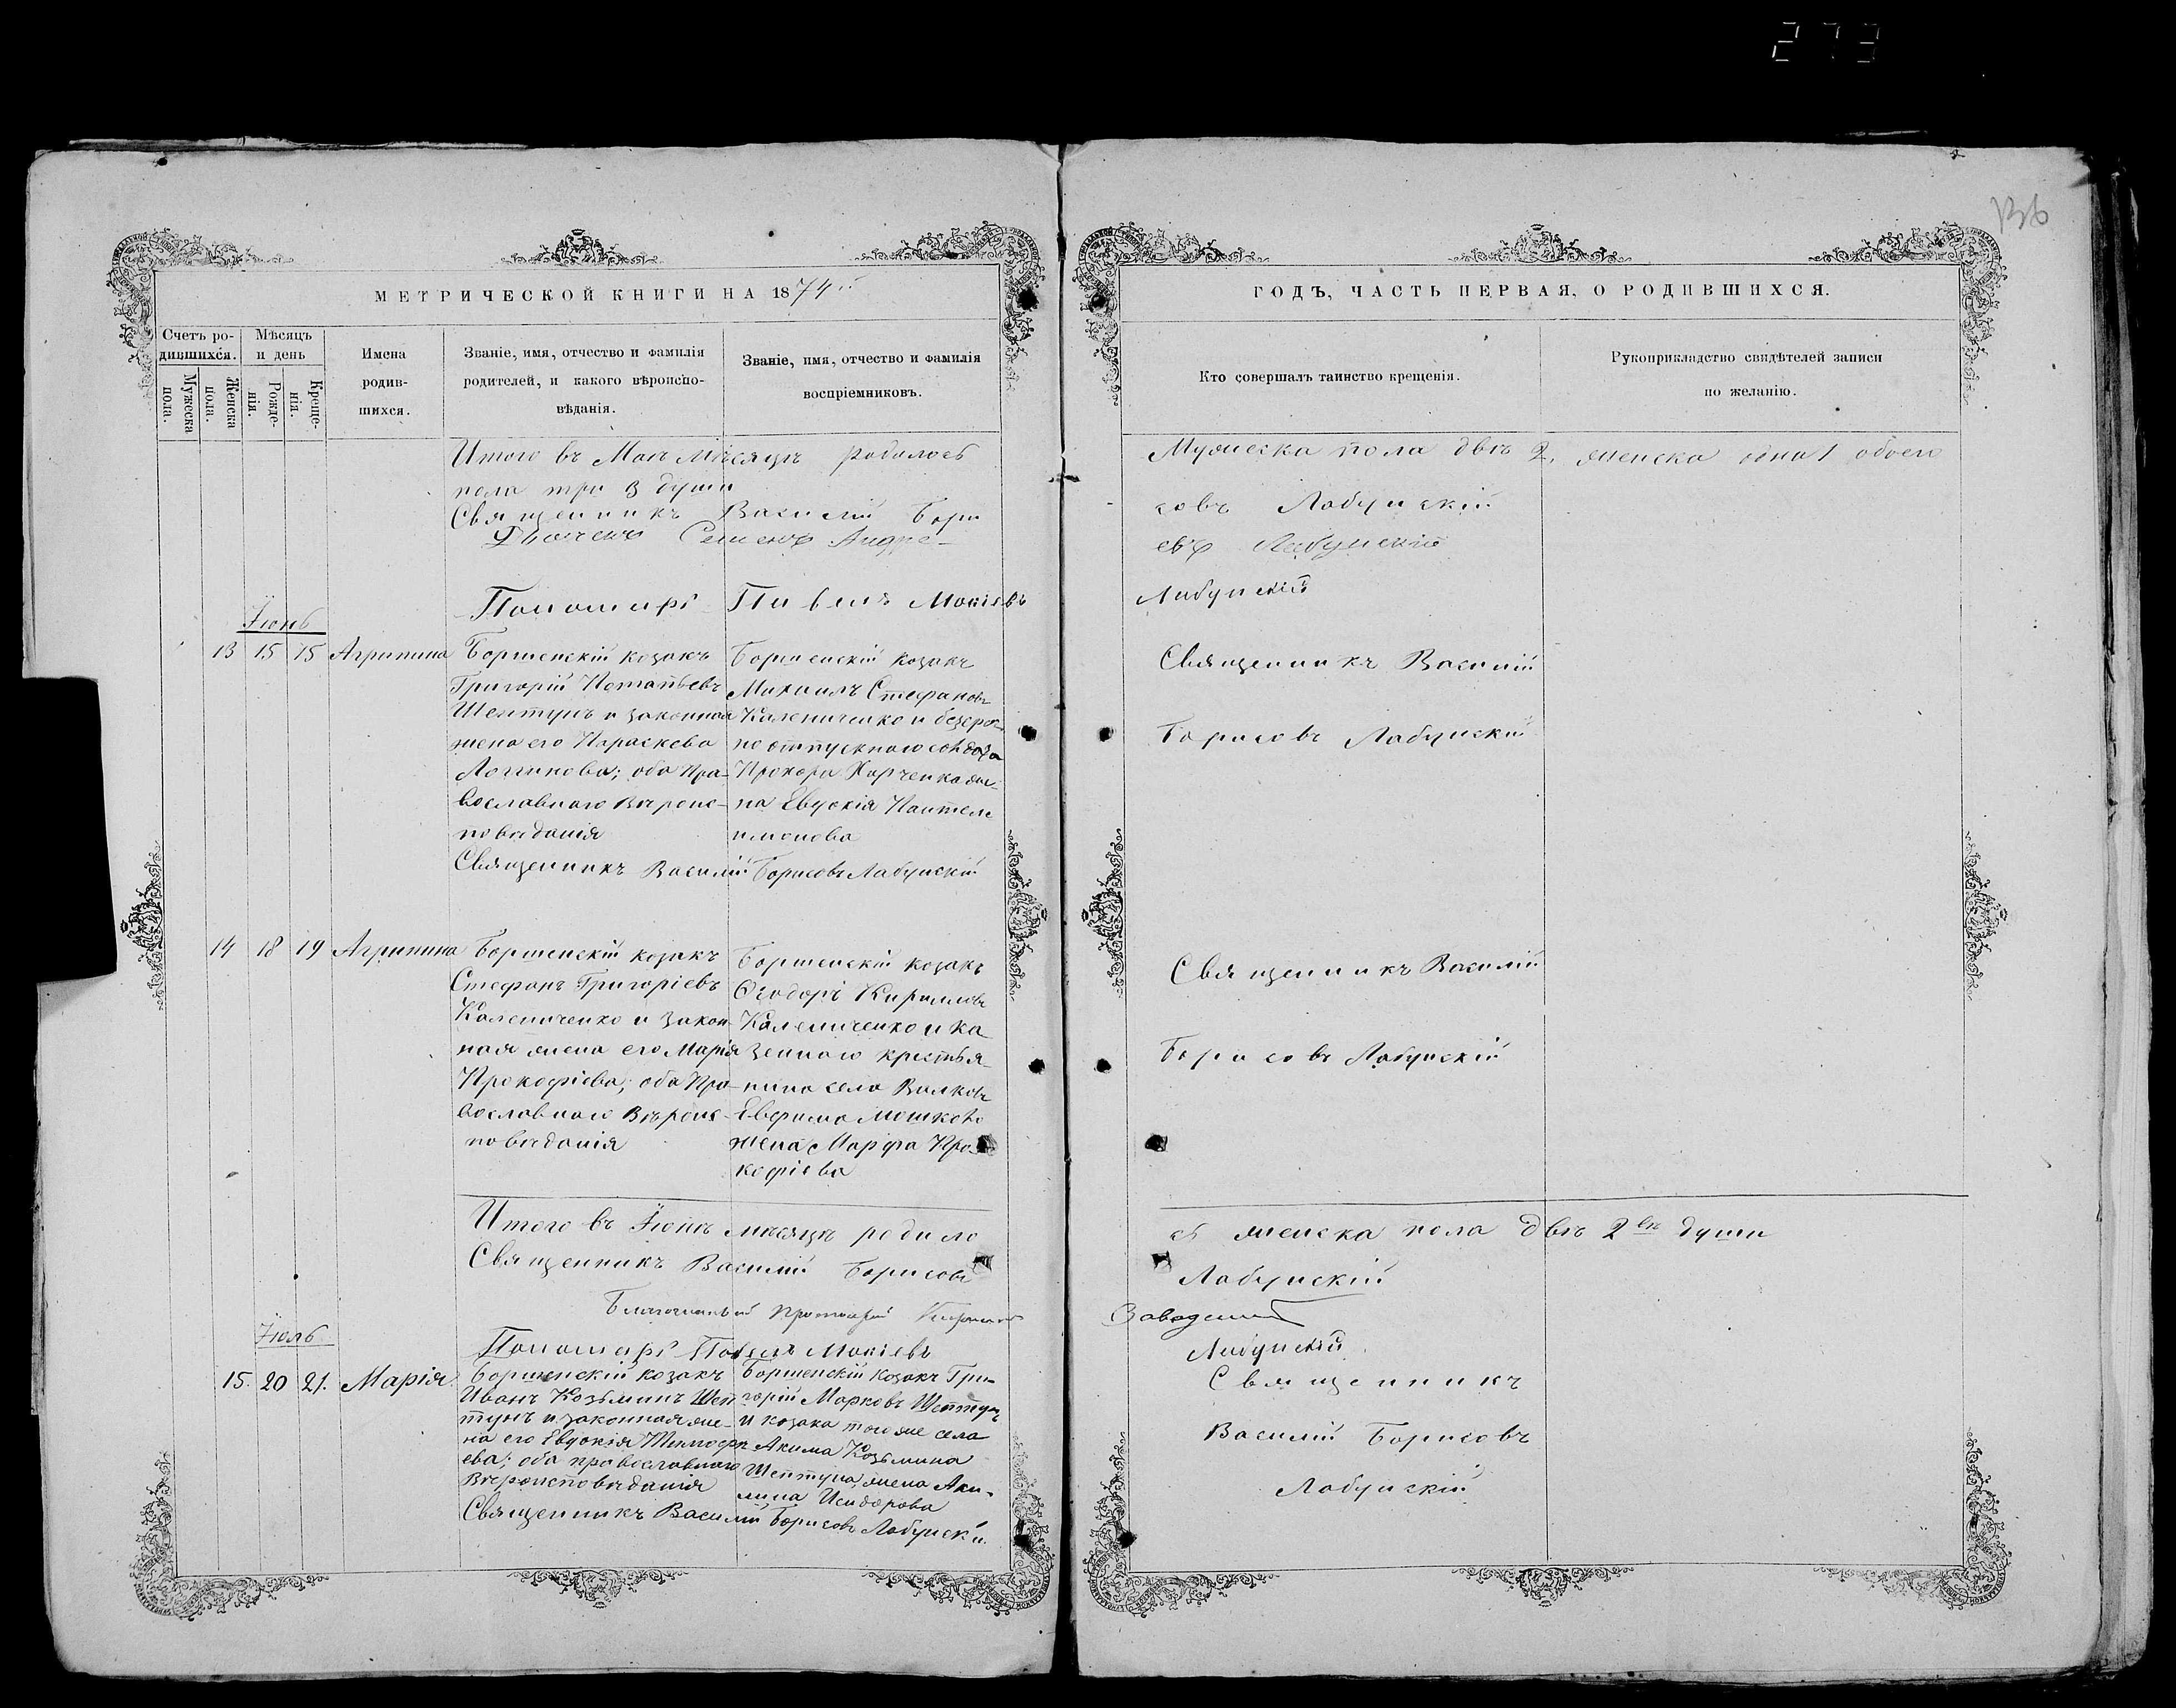 273
МЕТРИЧЕСКОЙ КНИГИ НА 1874
ГОДЪ, ЧАСТЬ ПЕРВАЯ, О РОДИВШИХСЯ.
Счетъ ро-
дившихся.
Мужеска
пола.
Женска
пола.
Мѣсяцъ
и день
Рожде-
нія.
Креще-
нія.
Имена
родив-
шихся.
Званіе, имя, отчество и фамилія
родителей, и какого вѣроиспо-
вѣданія.
Званіе, имя, отчество и фамилія
воспріемниковъ.
Кто совершалъ таинство крещенія.
Рукоприкладство свидѣтелей записи
по желанію.
Итого въ Маѣ мѣсяцѣ родилось Мужеска пола двѣ 2, женска одна 1 обоего
пола три 3 души
Священникъ Василій Борисовъ Лабунскій
Семенъ Андре-евъ Лабунскій
Пономарь Павелъ Мокіевъ Лабунскій
Іюнь
13 15 15 Агрипина
Борзенскій козакъ
Григорій Потапьевъ
Шептунъ и законная
жена его Параскева
Логинова; оба Пра-
вославнаго Вѣроис-
повѣданія
Борзенскій козакъ
Михаилъ Стефановъ
Калениченко и безсроч-
но отпускного солдата
Прокора Харченка же-
на Евдокія Пантеле
имонова
Священникъ Василій Борисовъ Лабунскій
Священникъ Василій
Борисовъ Лабунскій
14 18 19 Агрипина
Борзенскій козакъ
Стефанъ Григоріевъ
Калениченко и закон-
ная жена его Марія
Прокофіева; оба Пра-
вославнаго Вѣроис-
повѣданія
Борзенскій козакъ
Ѳеодоръ Кириловъ
Калениченко и ка
зенного крестья-
нина села
Евфима
жена Марфа Про-
кофіева
Священникъ Василій
Борисовъ Лабунскій
Итого въ Іюнѣ мѣсяцѣ родило сь женска пола двѣ 2 души
Священникъ Василій Борисовъ Лабунскій
Благочинный Протоіерей
Пономарь Павелъ Мокіевъ Лабунскій
Іюль
15. 20 21. Марія
Борзенскій козакъ
Иванъ Козьминъ Шеп
тунъ и законная же-
на его Евдокія Тимофе
ева; оба православнаго
Вѣроисповѣданія
Борзенскій козакъ Гри-
горій Марковъ Шептунъ
и козака того же села
Акима Козьмина
Шептуна жена Аки-
лина Исидорова
Священникъ Василій Борисовъ Лабунскій
Священникъ
Василій Борисовъ
Лабунскій